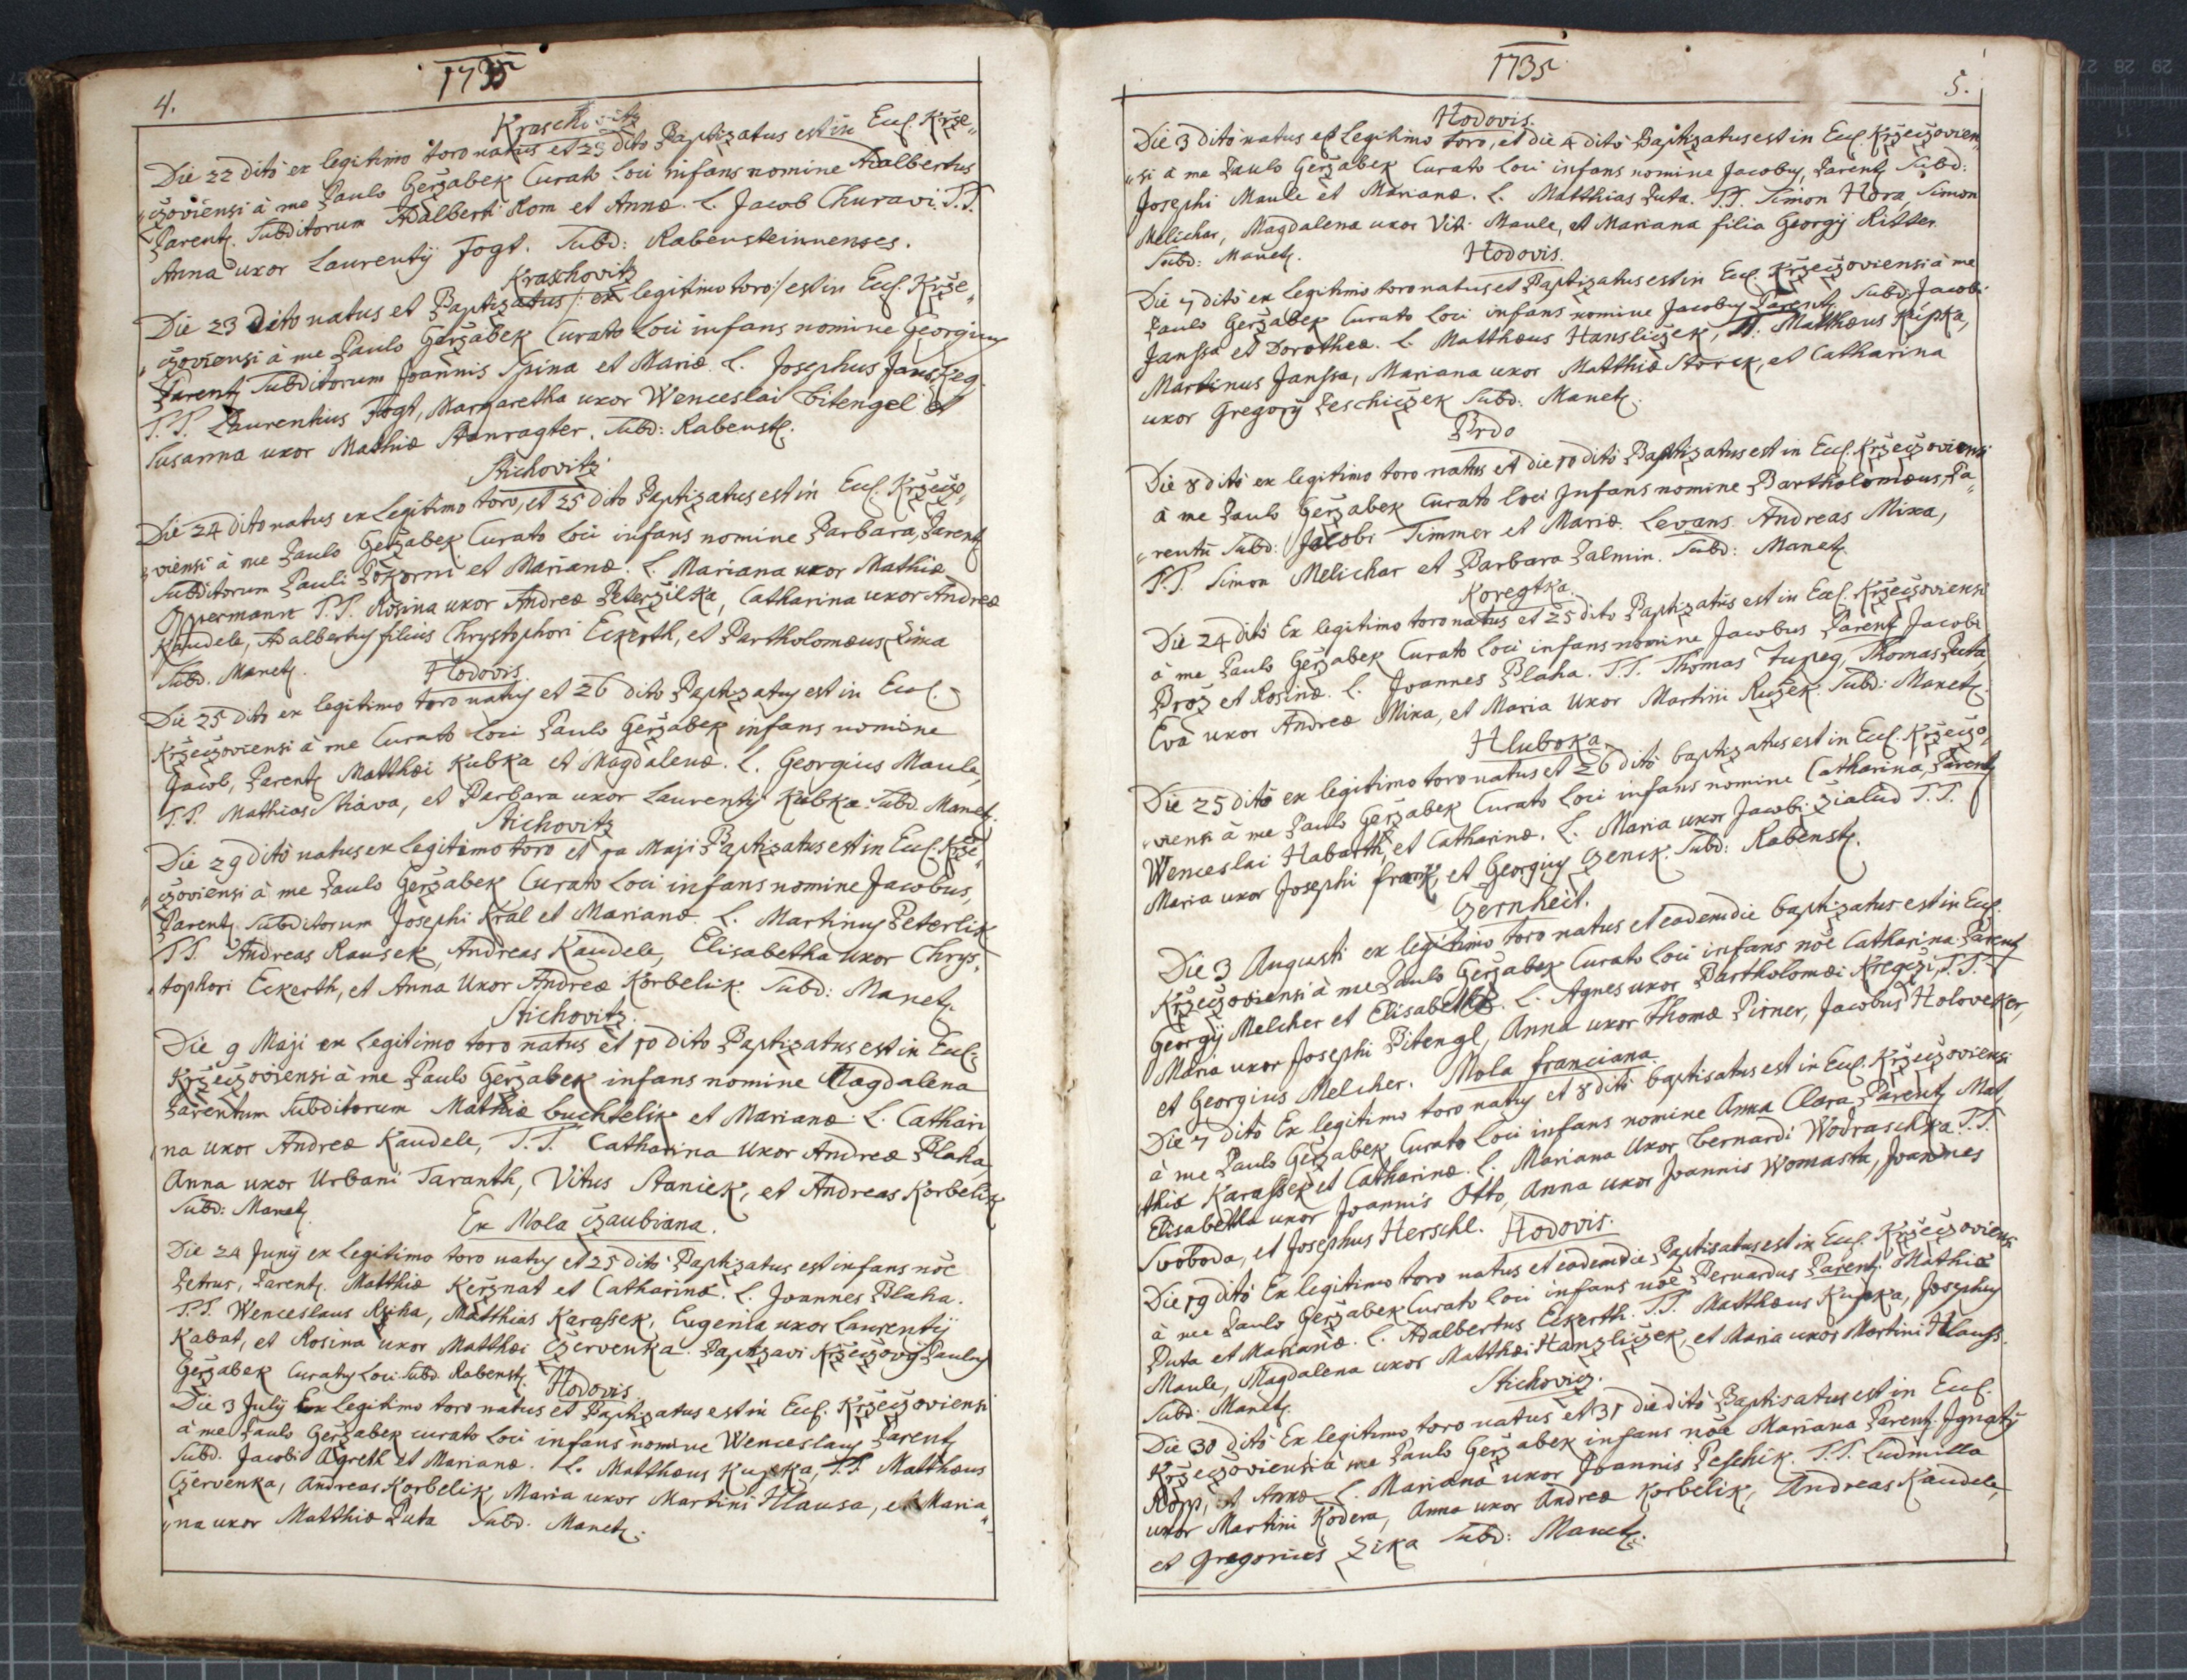 4.
1735
Kraschovitz
Die 22 dito ex legitimo toro natus et 23 dito Baptizatus est in Eccl. Krže„
„czoviensi à me Paulo Geržabek Curato Loci infans nomine Adalbertus
Parent. Subditorum Adalberti Kom et Annæ. L. Jacob Churavi. T.T.
Anna uxor Laurentÿ Fogt. Subd: Rabensteinenses.
Kraschovitz
Die 23 Dito natus et Baptizatus /: ex legitimo toro :/ est in Eccl. Krže„
„czoviensi à me Paulo Geržabek Curato Loci infans nomine Georgius
Parent. Subditorum Joannis Spina et Mariæ. L. Josephus
T.T. Laurentius Fogt, Margaretha uxor Wenceslai Bitengel et
Susanna uxor Mathiæ Subd: Rabenst.
Stichovitz
Die 24 dito natus ex Legitimo toro, et 25 dito Baptizatus est in Eccl. Kržeczo„
„viensi à me Paulo Geržabek Curato Loci infans nomine Barbara, Parent.
Subditorum Pauli Pokorni et Marianæ. L. Mariana uxor Mathiæ
Oppermann T.T. Rosina uxor Andreæ Peteržilka, Catharina uxor Andreæ
Kaudele, Adalbertus filius Chrystophori Eckerth, et Bartholomæus Zima
Subd. Manet.
Hodovis.
Die 25 dito ex legitimo toro natus et 26 dito Baptizatus est in Eccl.
Kržeczoviensi à me Curato Loci Paulo Geržabek infans nomine
Jacob, Parent. Matthæi Kubka et Magdalenæ. L. Georgius Maule,
T.T. Mathias Stiava, et Barbara uxor Laurentÿ Kubka. Subd. Manet.
Stichovitz
Die 29 dito natus ex Legitimo toro et 1a Maji Baptizatus est in Eccl. Krže„
„czoviensi à me Paulo Geržabek Curato Loci infans nomine Jacobus,
Parent. Subditorum Josephi Kral et Marianæ. L. Martinus Peterlik
T.T. Andreas Rausek, Andreas Kaudele, Elisabetha uxor Chrys„
„tophori Eckerth, et Anna Uxor Andreæ Korbelik. Subd: Manet.
Stichovitz.
Die 9 Maji ex Legitimo toro natus et 10 dito Baptizatus est in Eccl.
Kržeczoviensi à me Paulo Geržabek infans nomine Magdalena
Parentum Subditorum Mathiæ buchtelik et Marianæ: L. Cathari
„na uxor Andreæ Kaudele, T.T. Catharina Uxor Andreæ Blaha
Anna uxor Urbani Taranth, Vitus Staniek, et Andreas Korbelik
Subd: Manet.
Ex Mola Czaubiana.
Die 24 Junÿ ex Legitimo toro natus et 25 dito Baptizatus est infans noe
Petrus, Parent. Matthiæ Keržnat et Catharinæ. L. Joannes Blaha.
T.T. Wenceslaus Ržiha, Matthias Karassek, Eugenia uxor Laurentÿ
Kabat, et Rosina uxor Matthæi Czervenka. Baptizavi Kržeczovÿ Paulus
Geržabek Curatus Loci. Subd. Rabenst.
Hodovis
Die 3 Julÿ Ex Legitimo toro natus et Baptizatus est in Eccl. Kržeczoviensi
à me Paulo Geržabek curato Loci infans nomine Wenceslaus Parent.
Subd. Jacobi Agreth et Marianæ. L. Matthæus Kupka, T.T. Matthæus
Czervenka, Andreas Korbelik, Maria uxor Martini Hlausa, et Maria„
„na uxor Matthiæ Puta Subd. Manet.
1735
5.
Hodovis.
Die 3 dito natus ex Legitimo toro, et die 4 dito Baptizatus est in Eccl. Kržeczovien„
„si à me Paulo Geržabek Curato Loci infans nomine Jacobus, Parent. Subd:
Josephi Maule et Marianæ. L. Matthias Puta. T.T. Simon Hora, Simon
Melichar, Magdalena uxor Viti Maule, et Mariana filia Georgÿ Ritter.
Subd: Manet.
Hodovis.
Die 7 dito ex Legitimo toro natus et Baptizatus est in Eccl. Kržeczoviensi à me
Paulo Geržabek Curato Loci infans nomine Jacobus Parent. Subd: Jacobi
Janssa et Dorotheæ. L. Matthæus Hansliczek, T.T. Matthæus Kupka,
Martinus Janssa, Mariana uxor Matthiæ Storek, et Catharina
uxor Gregorÿ Leschiczek Subd: Manet.
Brdo
Die 8 dito ex legitimo toro natus et die 10 dito Baptizatus est in Eccl. Kržeczoviensi
à me Paulo Geržabek Curato Loci Infans nomine Bartholomæus, Pa„
„rentū Subd: Jacobi Timmer et Mariæ. Levans Andreas Mixa,
T.T. Simon Melichar et Barbara Palmin. Subd: Manet.
Koregtka.
Die 24 dito Ex legitimo toro natus et 25 dito Baptizatus est in Eccl. Kržeczoviensi
à me Paulo Geržabek Curato Loci infans nomine Jacobus Parent. Jacobi
Broz et Rosinæ. L. Joannes Blaha. T.T. Thomas Tupeg, Thomas Puta,
Eva uxor Andreæ Mixa, et Maria Uxor Martini Ružek. Subd: Manet.
Hluboka.
Die 25 dito ex legitimo toro natus et 26 dito baptizatus est in Eccl. Kržeczo„
„viensi à me Paulo Geržabek Curato Loci infans nomine Catharina, Parent.
Wenceslai Habarth, et Catharinæ. L. Maria uxor Jacobi Zialud T.T.
Maria uxor Josephi frank, et Georgius Czenek. Subd: Rabenst.
Czernheit.
Die 3 Augusti ex legitimo toro natus et eadem die baptizatus est in Eccl.
Kržeczoviensi à me Paulo Geržabek Curato Loci infans noe Catharina Parent.
Georgÿ Melcher et Elisabethæ. L. Agnes uxor Bartholomæi Kregczi, T.T.
Maria uxor Josephi Bitengl, Anna uxor Thomæ Pirner, Jacobus Holoveker,
et Georgius Melcher.
Mola franciana.
Die 7 dito Ex legitimo toro natus et 8 dito baptisatus est in Eccl. Kržeczoviensi
à me Paulo Geržabek Curato Loci infans nomine Anna Clara Parent. Mat„
thiæ Karassek et Catharinæ. L. Mariana Uxor bernardi Wodraschka. T.T.
Elisabetha uxor Joannis Otto, Anna uxor Joannis Womasta, Joannes
Svoboda, et Josephus Herschl.
Hodovis.
Die 19 dito Ex legitimo toro natus et eadem die Baptisatus est in Eccl. Kržeczoviensi
à me Paulo Geržabek Curato Loci infans noe Bernardus Parent. Mathiæ
Puta et Marianæ. L. Adalbertus Eckerth. T.T. Matthæus Kupka, Josephus
Maule, Magdalena uxor Matthæi Hanzliczek, et Maria uxor Martini Hlauss.
Subd. Manet.
Stichovicz.
Die 30 dito Ex legitimo toro natus et 31 die dito Baptisatus est in Eccl.
Kržeczoviensi à me Paulo Geržabek infans noe Mariana Parent. Ignatÿ
Kopp, et Annæ L. Mariana uxor Joannis Peschik. T.T. Ludmilla
uxor Martini Kodera, Anna uxor Andreæ Korbelik, Andreas Kaudele,
et Gregorius Zika Subd: Manet.